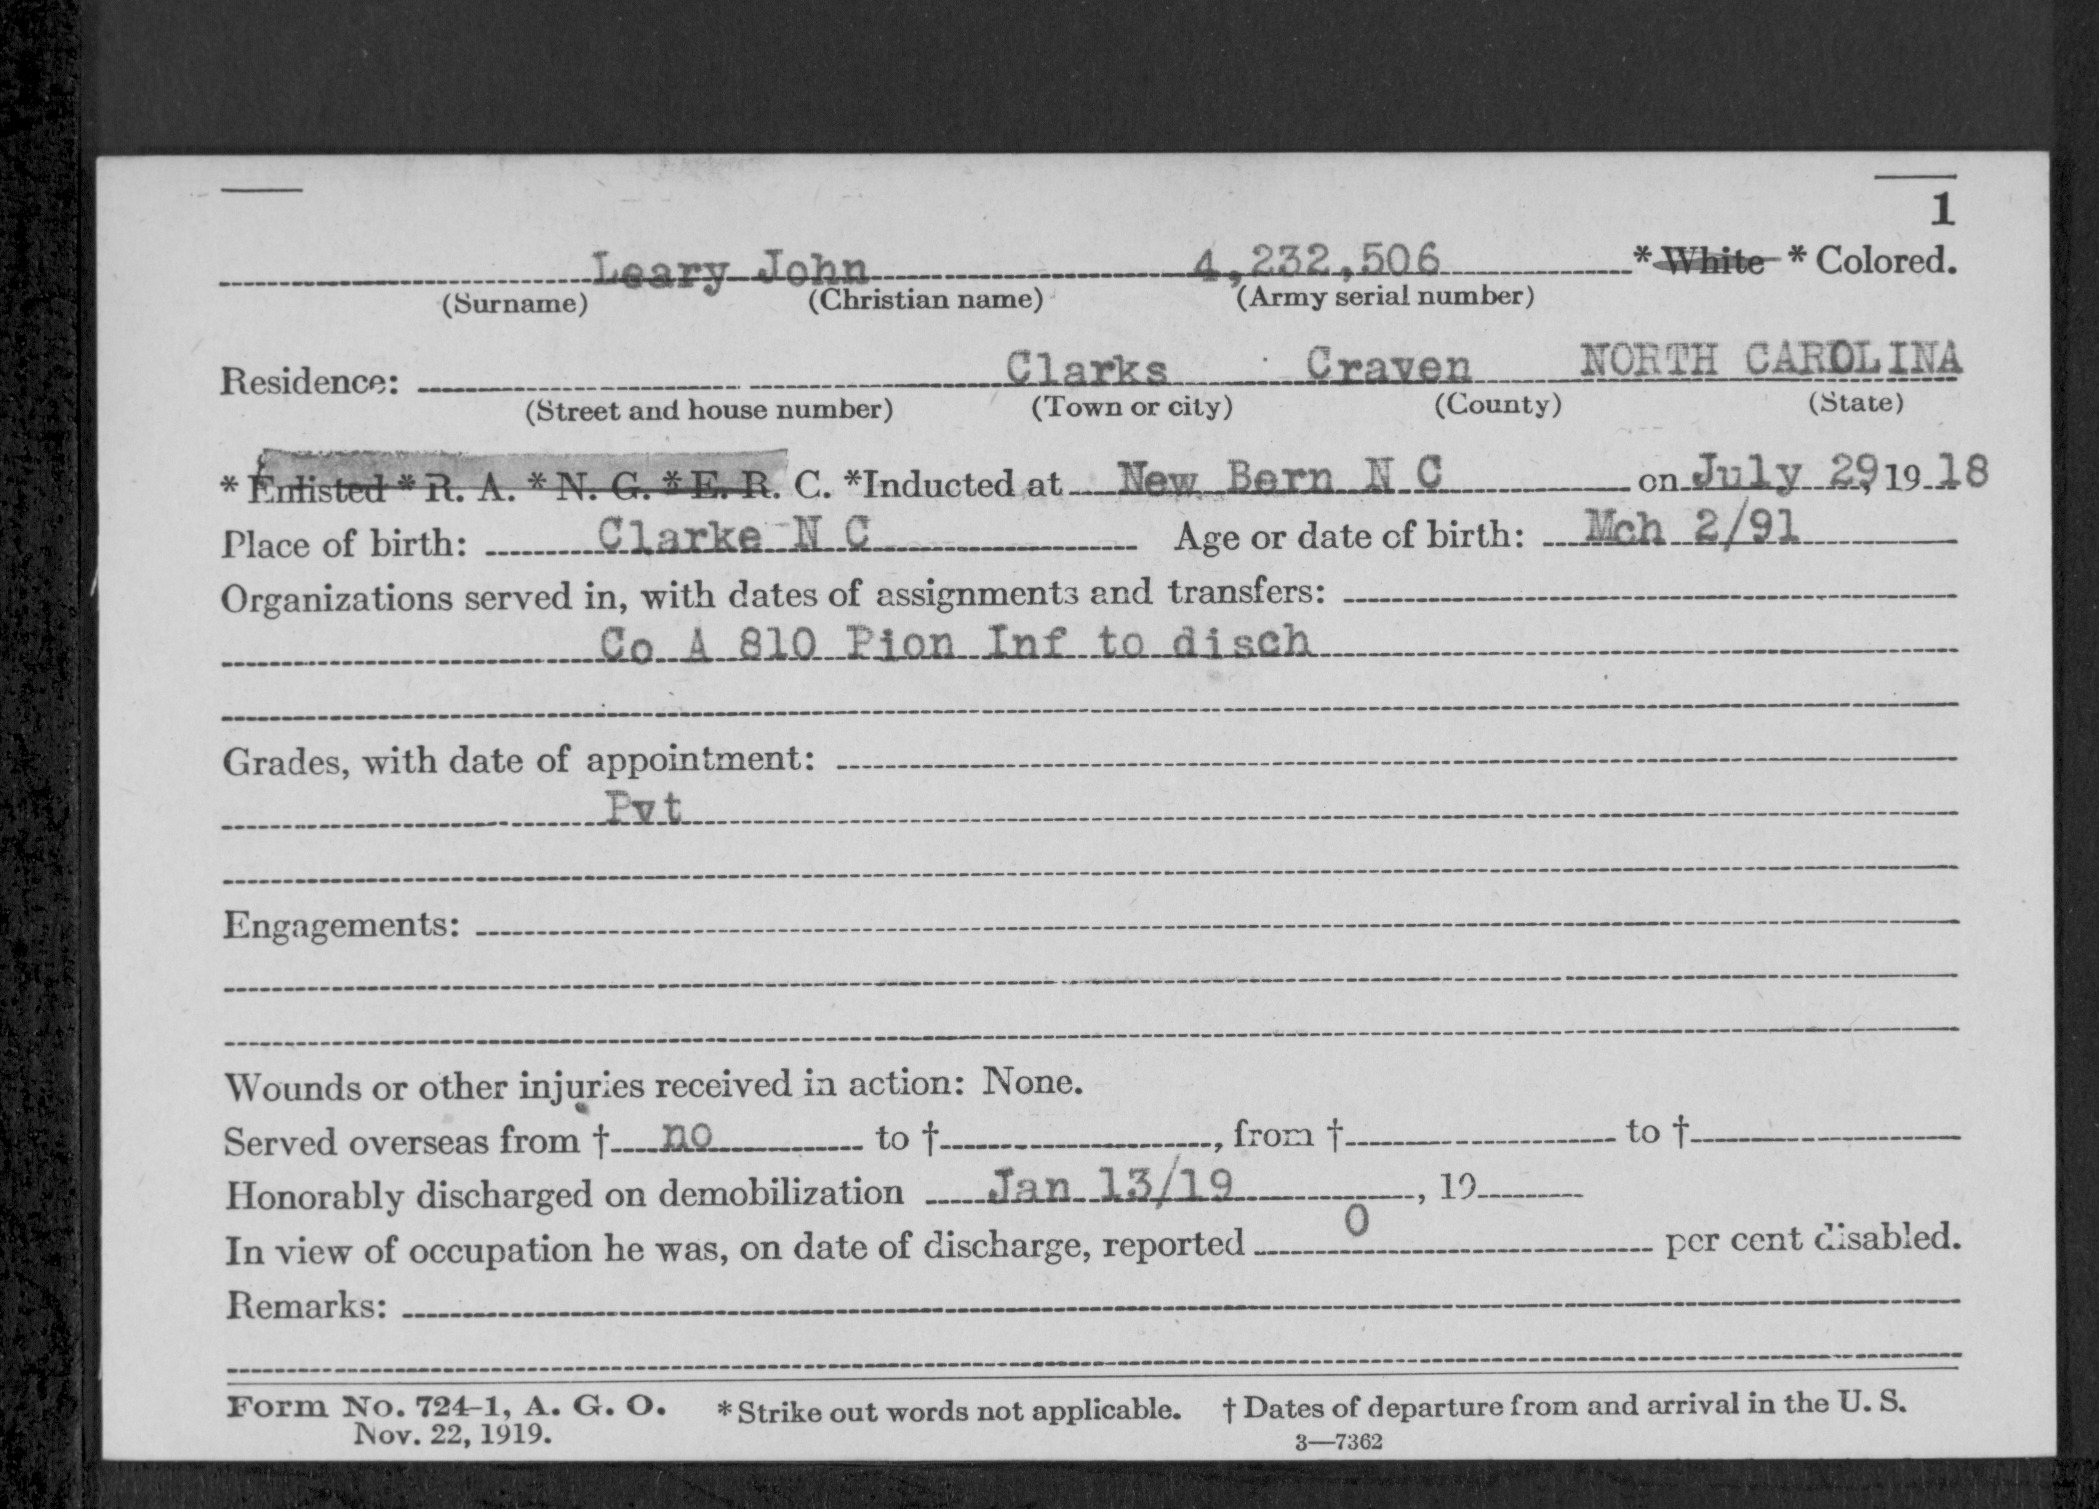 1
Leary John 4,232,506 * White * Colored.
(Surname) (Christian name) (Army serial number)
Residence: Clarks Craven NORTH CAROLINA
(Street and house number) (Town or city) (County) (State)
* Enlisted * R. A. * N. G. * E. R. C. *Inducted at New Bern N C on July 29, 19 18
Place of birth: Clarke N C Age or date of birth: Mch 2/91
Organizations served in, with dates of assignments and transfers:
Co A 810 Pion Inf to disch
Grades, with date of appointment:
Pvt
Engagements:
Wounds or other injuries received in action: None.
Served overseas from † no to †, from † to †
Honorably discharged on demobilization Jan 13/19, 19
In view of occupation he was, on date of discharge, reported 0 per cent disabled.
Remarks:
Form No. 724-1, A. G. O. * Strike out words not applicable. † Dates of departure from and arrival in the U. S.
Nov. 22, 1919. 3—7362